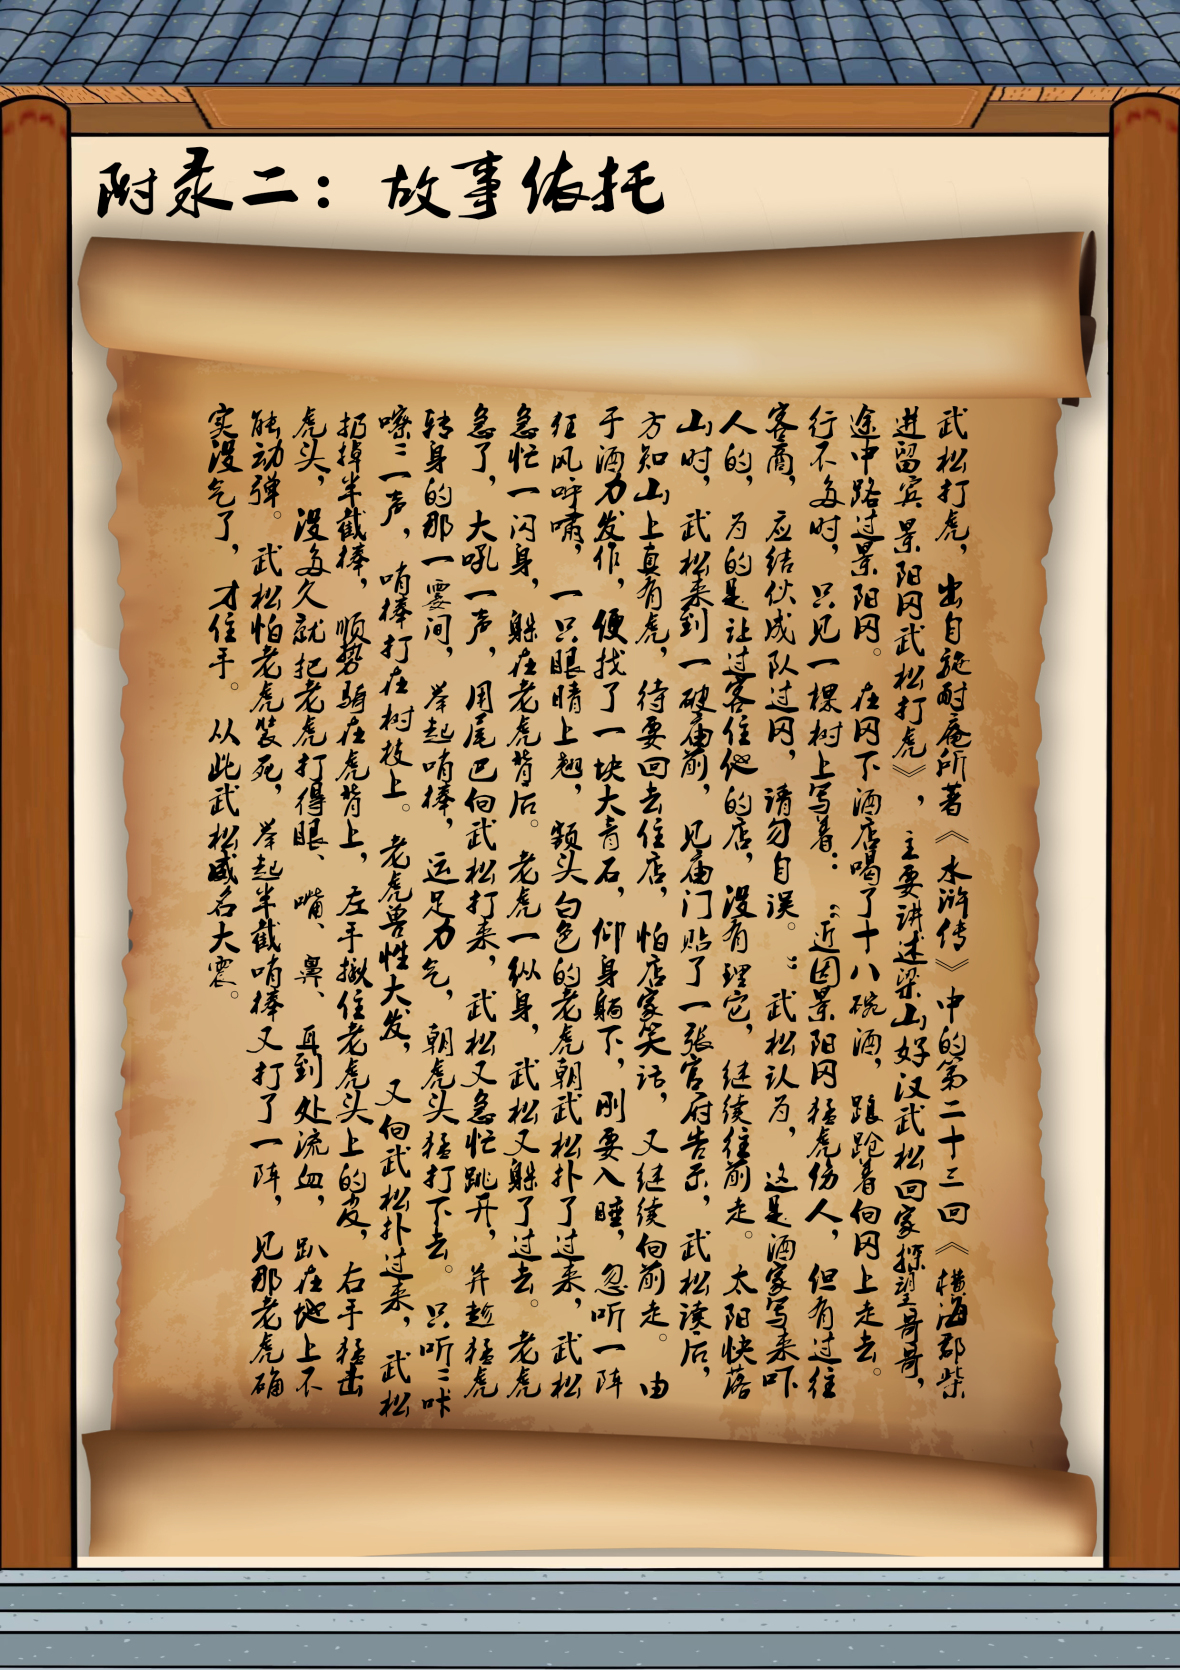 附录二：故事依托
武松打虎，出自施耐庵所著《水浒传》中的第二十三回《横海郡柴
进留宾 景阳冈武松打虎》，主要讲述梁山好汉武松回家探望哥哥，
途中路过景阳冈。在冈下酒店喝了十八碗酒，踉跄着向冈上走去。
行不多时，只见一棵树上写着：“近因景阳冈猛虎伤人，但有过往
客商，应结伙成队过冈，请勿自误。”武松认为，这是酒家写来吓
人的，为的是让过客住他的店，没有理它，继续往前走。太阳快落
山时，武松来到一破庙前，见庙门贴了一张官府告示，武松读后，
方知山上真有虎，待要回去住店，怕店家笑话，又继续向前走。由
于酒力发作，便找了一块大青石，仰身躺下，刚要入睡，忽听一阵
狂风呼啸，一只眼睛上翘，额头白色的老虎朝武松扑了过来，武松
急忙一闪身，躲在老虎背后。老虎一纵身，武松又躲了过去。老虎
急了，大吼一声，用尾巴向武松打来，武松又急忙跳开，并趁猛虎
转身的那一霎间，举起哨棒，运足力气，朝虎头猛打下去。只听“咔
嚓”一声，哨棒打在树枝上。老虎兽性大发，又向武松扑过来，武松
扔掉半截棒，顺势骑在虎背上，左手揪住老虎头上的皮，右手猛击
虎头，没多久就把老虎打得眼、嘴、鼻、耳到处流血，趴在地上不
能动弹。武松怕老虎装死，举起半截哨棒又打了一阵，见那老虎确
实没气了，才住手。从此武松威名大震。